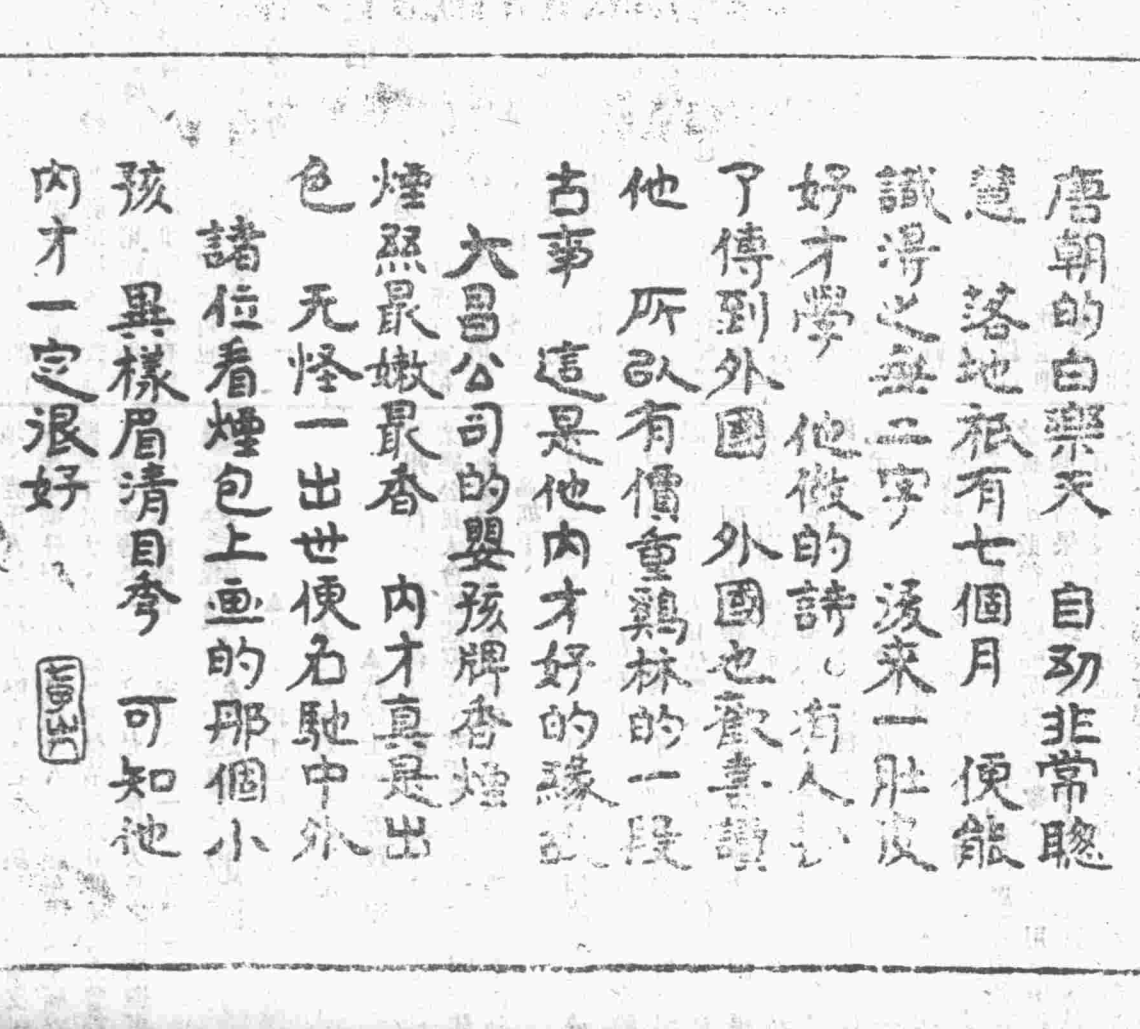 唐朝的白樂天　自幼非常聰
慧　落地祇有七個月　便能
識得之無二字　後来一肚皮
好才學　他做的詩　有人
了傳到外國　外國也歡喜讀
他　所以有價重鷄林的一段
古事　這是他内才好的緣故
大昌公司的嬰孩牌香煙
煙絲最嫩最香　内才真是出
色　无怪一出世便名馳中外
諸位看煙包上画的那個小
孩　異樣眉清目秀　可知他
内才一定很好